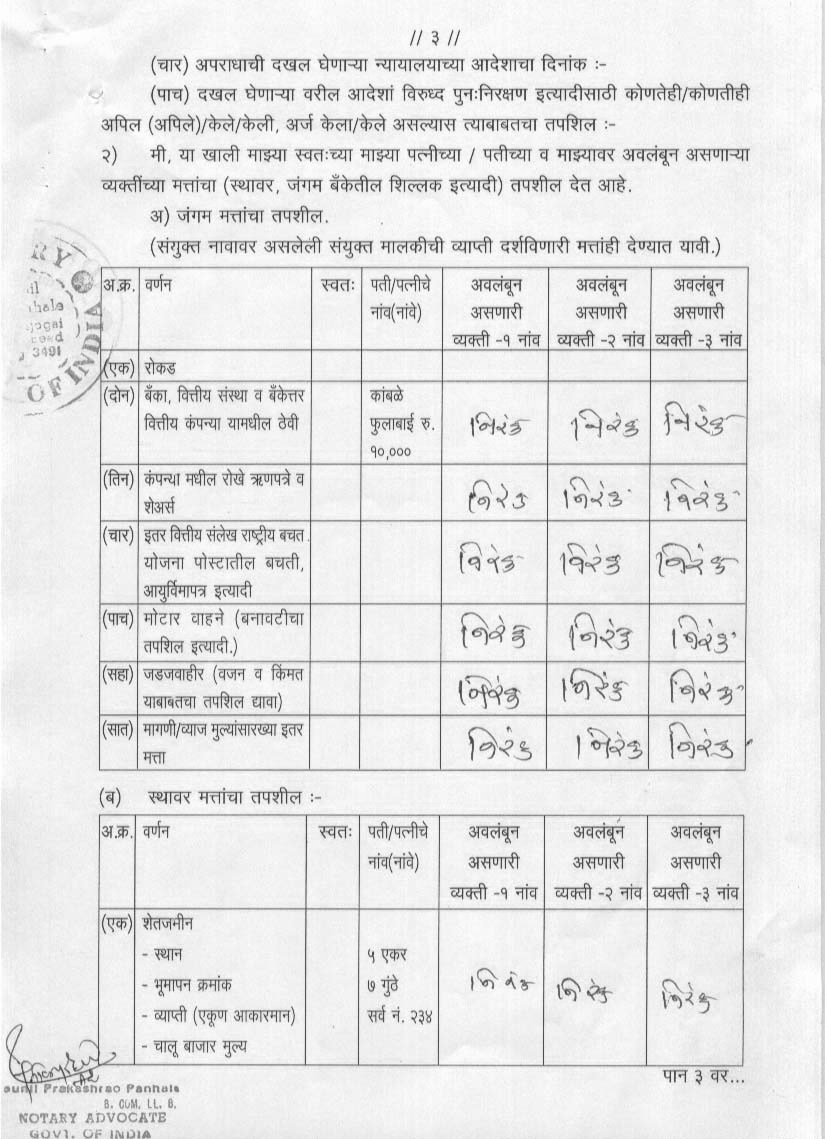 // ३ //
(चार) अपराधाची दखल घेणाऱ्या न्यायालयाच्या आदेशाचा दिनांक :-
(पाच) दखल घेणाऱ्या वरील आदेशां विरुध्द पुनःनिरक्षण इत्यादीसाठी कोणतेही/कोणतीही
अपिल (अपिले)/केले/केली, अर्ज केला/केले असल्यास त्याबाबतचा तपशिल :-
२) मी, या खाली माझ्या स्वतःच्या माझ्या पत्नीच्या / पतीच्या व माझ्यावर अवलंबून असणाऱ्या
व्यक्तींच्या मत्तांचा (स्थावर, जंगम बँकेतील शिल्लक इत्यादी) तपशील देत आहे.
अ) जंगम मत्तांचा तपशील.
(संगुक्त नावावर असलेली संयुक्त मालकीची व्याप्ती दर्शविणारी मत्तांही देण्यात यावी.)
अ.क्र. वर्णन स्वतः पती/पत्नीचे अवलंबून अवलंबून अवलंबून
नांव(नांवे) असणारी असणारी असणारी
व्यक्ती -१ नांव व्यक्ती -२ नांव व्यक्ती -३ नांव
(एक) रोकड
(दोन) बँका, वित्तीय संस्था व बँकेत्तर कांबळे
वित्तीय कंपन्या यामधील ठेवी फुलाबाई रु. निरंक निरंक निरंक
१०,०००
(तिन) कंपन्या मधील रोखे ऋणपत्रे व
शेअर्स निरंक निरंक निरंक
(चार) इतर वित्तीय संलेख राष्ट्रीय बचत
योजना पोस्टातील बचती, निरंक निरंक निरंक
आयुर्विमापत्र इत्यादी
(पाच) मोटार वाहने (बनावटीचा
तपशिल इत्यादी.) निरंक निरंक निरंक
(सहा) जडजवाहीर (वजन व किंमत
याबाबतचा तपशिल द्यावा) निरंक निरंक निरंक
(सात) मागणी/व्याज मुल्यांसारख्या इतर
मत्ता निरंक निरंक निरंक
(ब) स्थावर मत्तांचा तपशील :-
अ.क्र. वर्णन स्वतः पती/पत्नीचे अवलंबून अवलंबून अवलंबून
नांव(नांवे) असणारी असणारी असणारी
व्यक्ती -१ नांव व्यक्ती -२ नांव व्यक्ती -३ नांव
(एक) शेतजमीन
- स्थान ५ एकर
- भूमापन क्रमांक ७ गुंठे निरंक निरंक निरंक
- व्याप्ती (एकूण आकारमान) सर्व नं. २३४
- चालू बाजार मुल्य
पान ३ वर...
Sunil Prakashrao Panhale
B. COM, LL. B.
NOTARY ADVOCATE
GOVT. OF INDIA
3491
OF INDIA